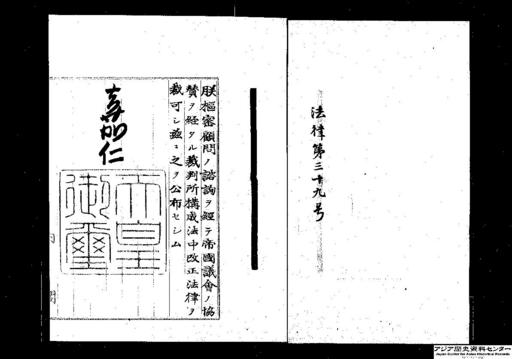 法律第三十九号
朕樞密顧問ノ諮詢ヲ經テ帝國議會ノ協
賛ヲ經タル裁判所構成法中改正法律ヲ
裁可シ茲ニ之ヲ公布セシム
嘉仁
天皇
御璽
アジア歴史資料センター
Japan Center for Asian Historical Records